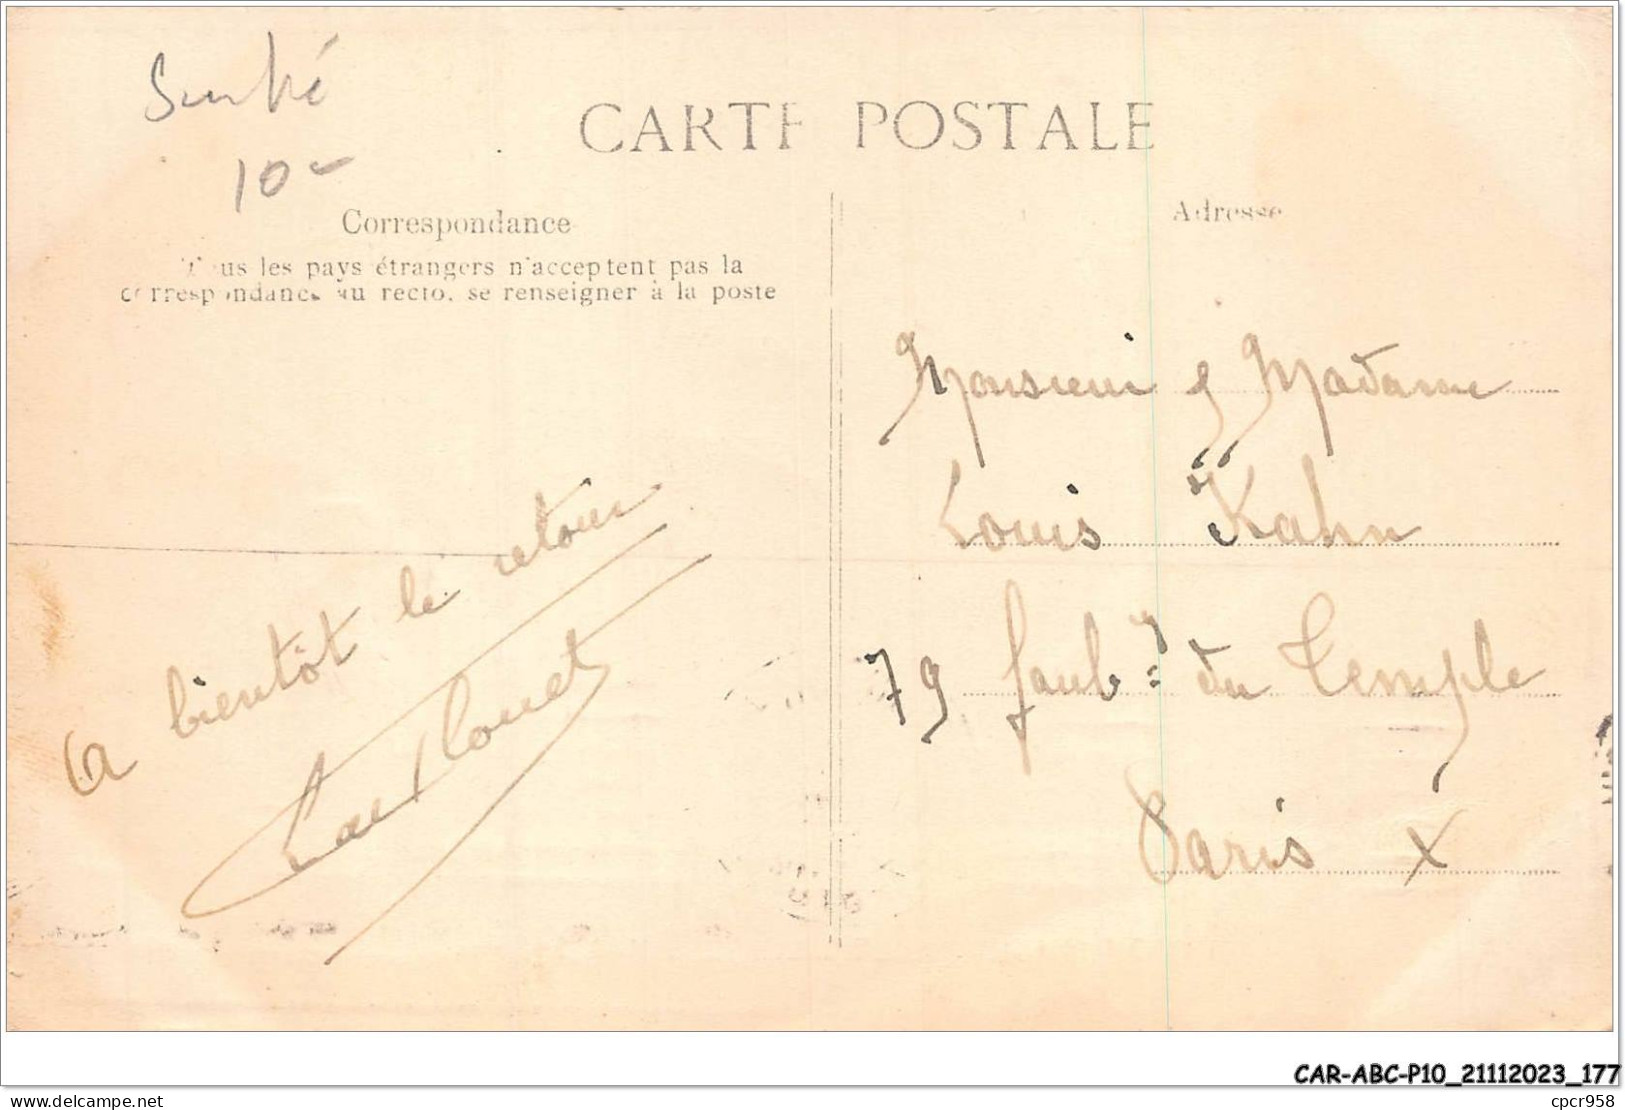 10-
CARTE POSTALE
Correspondance
Tous les pays étrangers n'acceptent pas la
correspondance au recto, se renseigner à la poste
A bientôt le retour
Adresse
Monsieur & Madame
Louis Kahn
79 faubg du Temple
Paris X
CAR-ABC-P10_21112023_177
www.delcampe.net
cpcr958